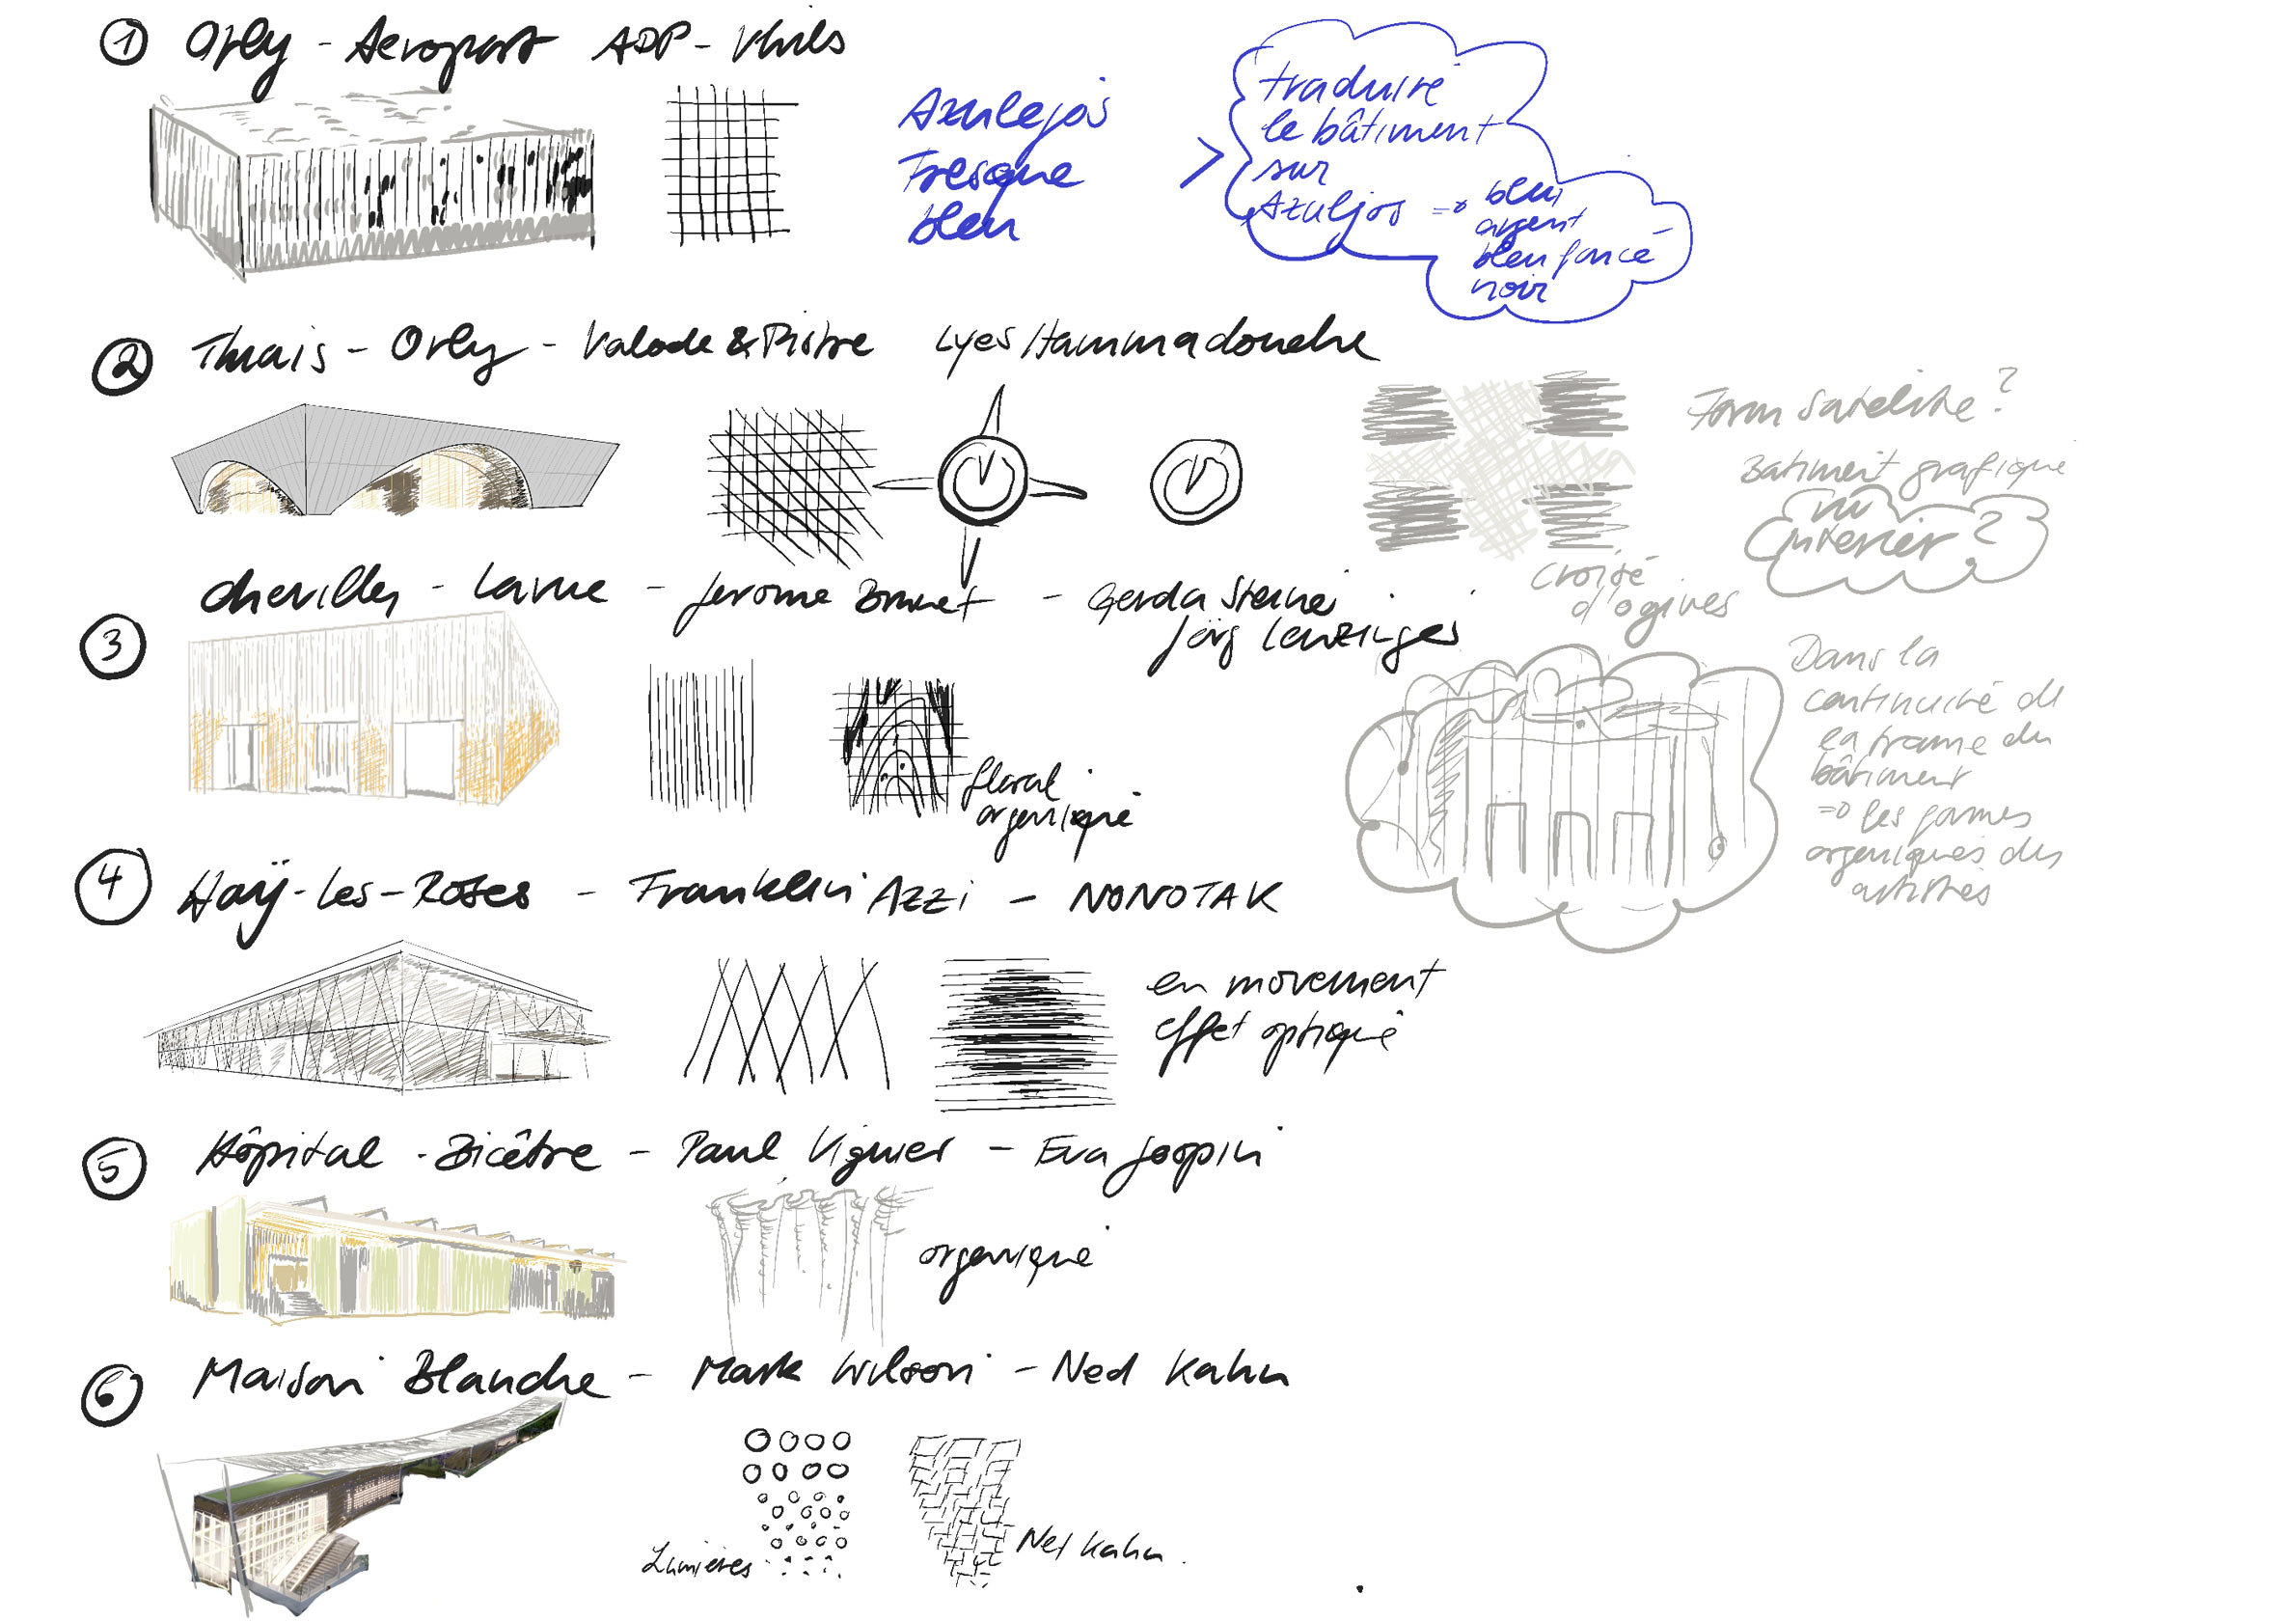 1 Orly - Aeroport ADP - Vhils
Azulejos
Fresque
bleu
>
traduire
le bâtiment
sur
Azuljos => bleu
argent
bleu foncé
noir
2 Thiais - Orly - Valode & Pistre Lyes Hammadouche
Form satelite?
Batiment grafique
vu
interier?
croisé
d'ogives
3 Chevilly - Larue - Jerome Brunet - Gerda Steiner
Jörg Lenzinger
floral
organique
Dans la
continuité du
la trame du
bâtiment
=> les formes
organiques des
artistes
4 Haÿ-les-Roses - Franklin Azzi - NONOTAK
en movement
effet optique
5 Hôpital - Bicêtre - Paul Viguier - Eva Jospin
organique
6 Maison Blanche - Mark Wilson - Ned Kahn
Lumières
Ned Kahn.